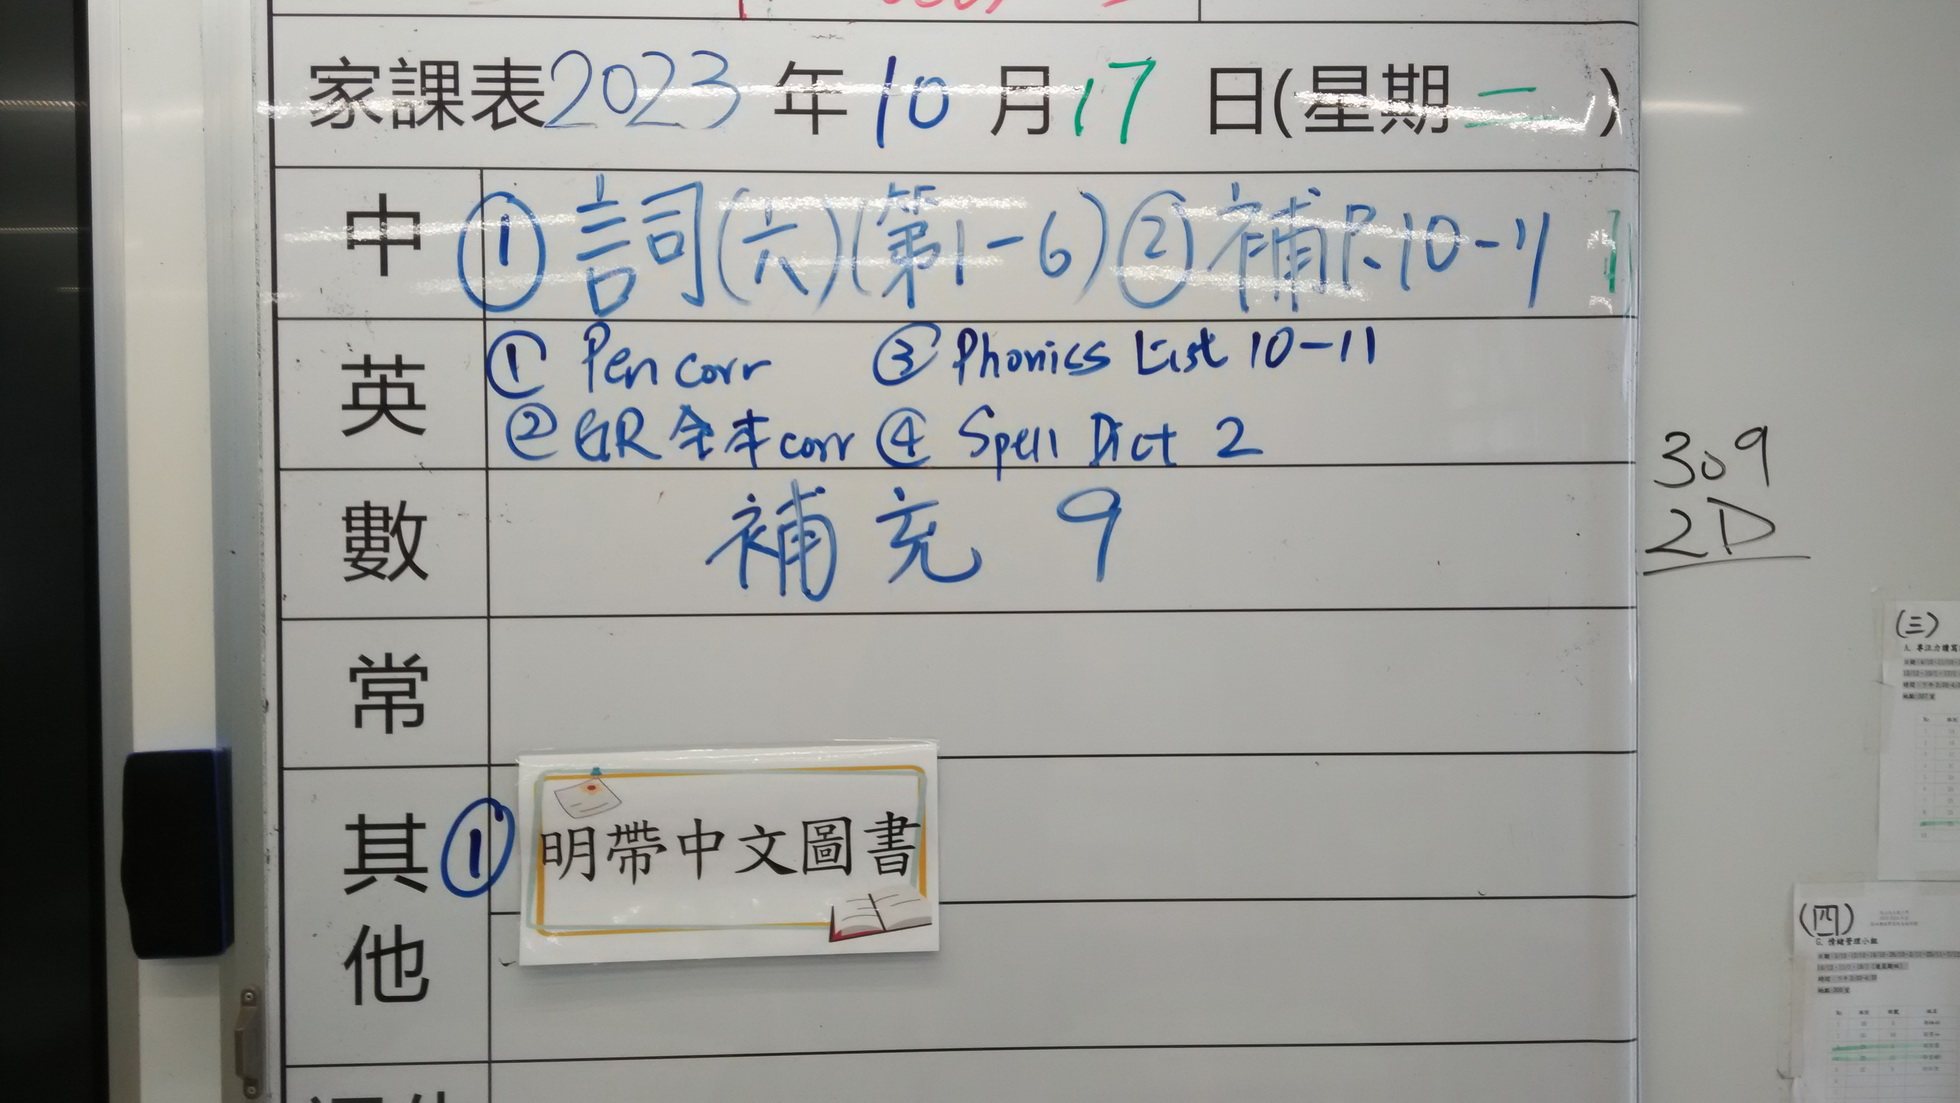 家課表2023年10月17日(星期二)
中 ①詞(六)(第1-6)②補P.10-11
英 ① Pen corr ③ Phonics List 10-11
② GR全本corr ④ Spell Dict 2
數 補充 9
常
其他 ① 明帶中文圖書
309
2D
(三)
(四)
G. 情緒管理小組